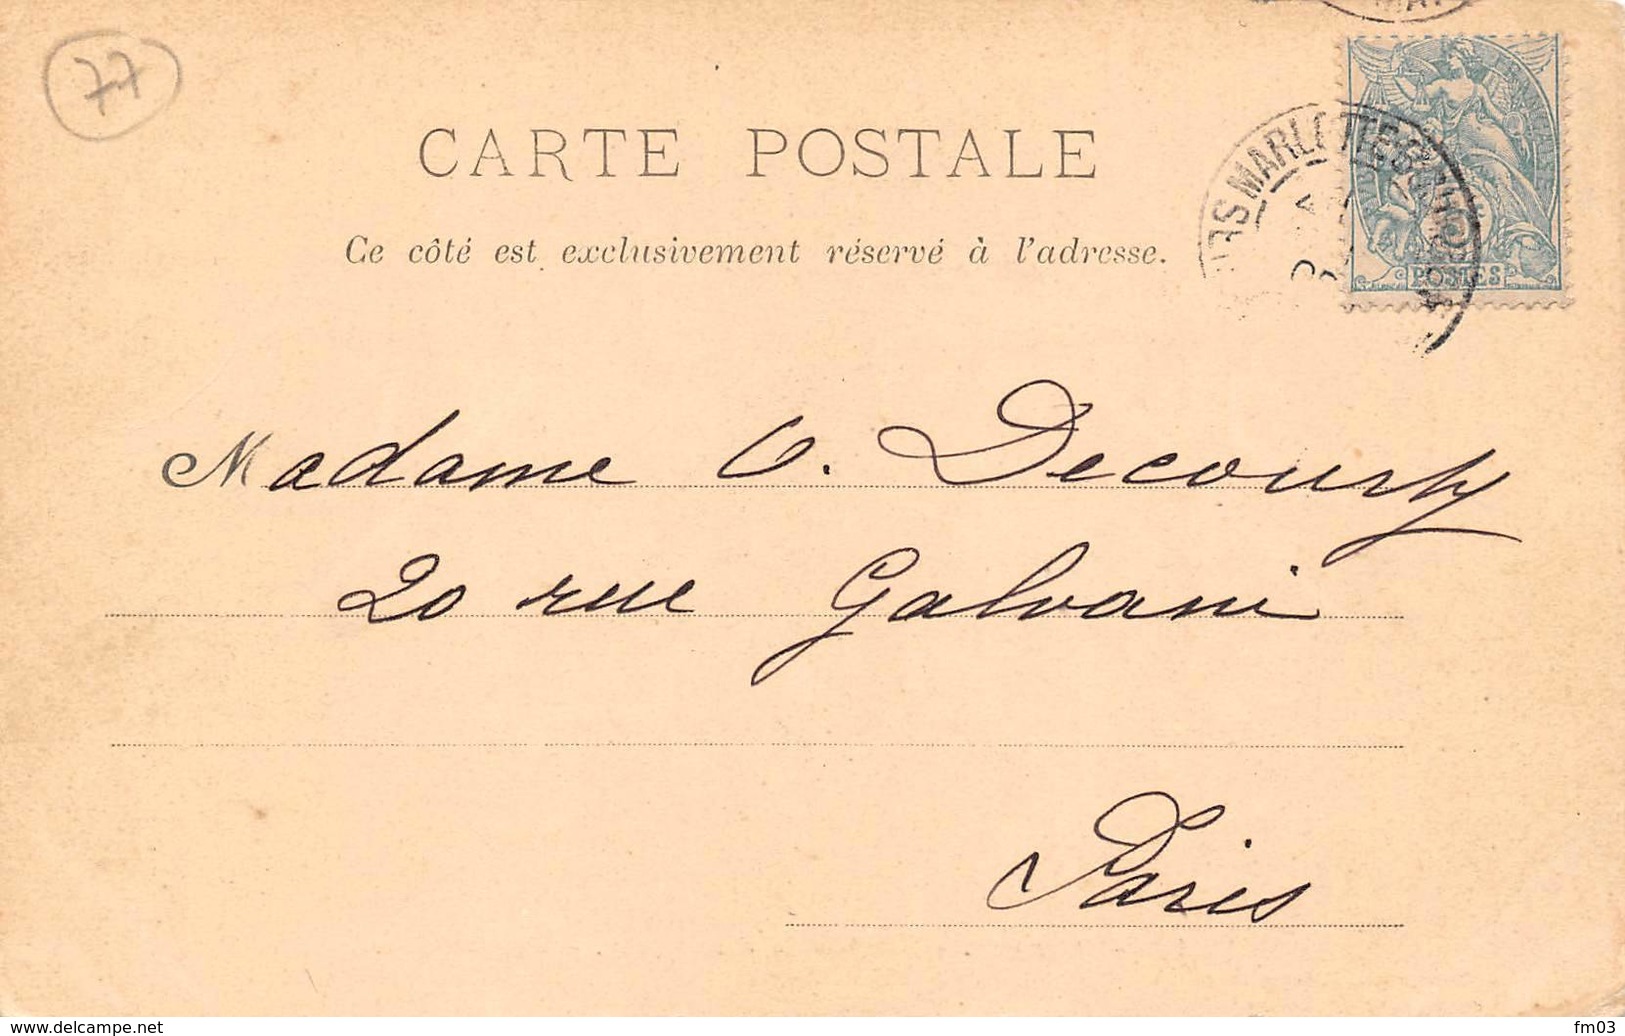 77
CARTE POSTALE
Ce côté est exclusivement réservé à l'adresse.
MARLOTTE
POSTES
Madame O. Decourty
20 rue Galvani
Paris
www.delcampe.net
fm03